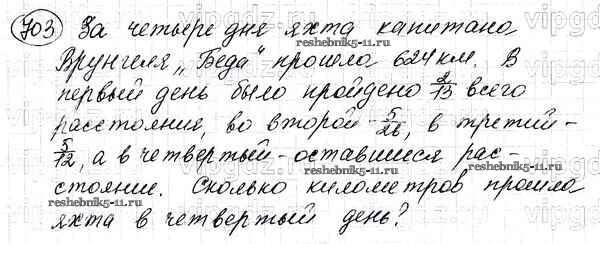 703 За четыре дня яхта капитана
Врунгеля „Беда" прошла 624 км. В
первый день было пройдено 2/13 всего
расстояния, во второй - 5/26, в третий -
5/12, а в четвертый - оставшиеся рас-
стояние. Сколько километров прошла
яхта в четвертый день?
reshebnik5-11.ru
reshebnik5-11.ru
reshebnik5-11.ru
reshebnik5-11.ru
vipgdz